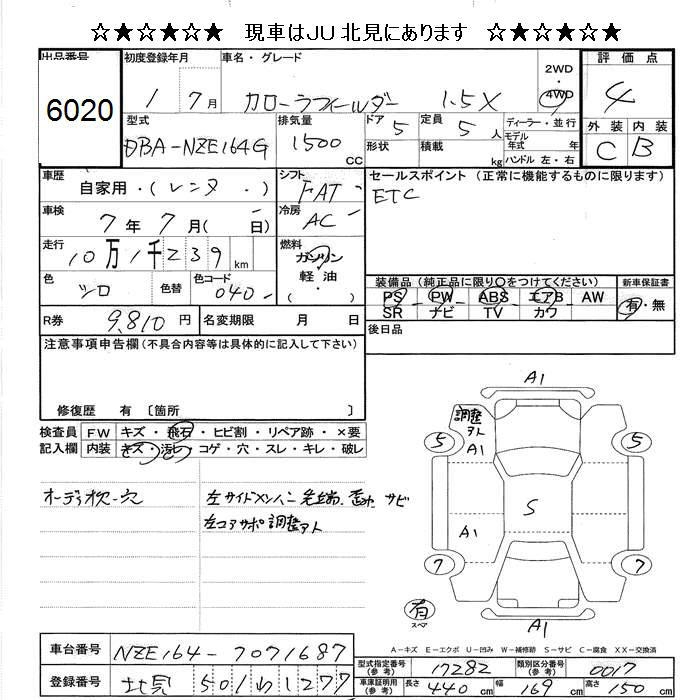 ☆★☆★☆★☆ 現車はJU北見にあります ☆★☆★☆★☆
出品番号 6020
初度登録年月 1 7月
車名・グレード カローラフィールダー 1.5X
2WD・4WD
評価点 4
外装 C 内装 B
型式 DBA-NZE164G
排気量 1500 CC
ドア形状 5
定員 5 人
積載 kg
ディーラー・並行
モデル年式 年式
ハンドル 左・右
車歴 自家用・(レンタ・)
シフト FAT
車検 7年7月(日)
冷房 AC
走行 10万1千239km
燃料 ガソリン 軽油 (・)
色 シロ 色替 色コード 040-
R券 9,810円 名変期限 月 日
セールスポイント (正常に機能するものに限ります)
ETC
装備品(純正品に限り○をつけてください) 新車保証書
PS PW ABS エアB AW 有・無
SR ナビ TV カワ
後日品
注意事項申告欄(不具合内容等は具体的に記入して下さい)
修復歴 有 〔箇所 〕
検査員記入欄 FW キズ・飛石・ヒビ割・リペア跡・×要
内装 キズ・汚レ・コゲ・穴・スレ・キレ・破レ
オーディオ欠-穴
左サイドメンバー 先端 歪ホ サビ
左コアサポ調整アト
A1
調整アト
A1
5 5
S
A1
7 7
A1
有 スペア
A-キズ E-エクボ U-凹み W-補修跡 S-サビ C-腐食 XX-交換済
車台番号 NZE164-7071687
登録番号 北見 501 わ 1277
型式指定番号(参考) 17282 類別区分番号(参考) 0017
車庫証明用(参考) 長さ 440cm 幅 169cm 高さ 150cm